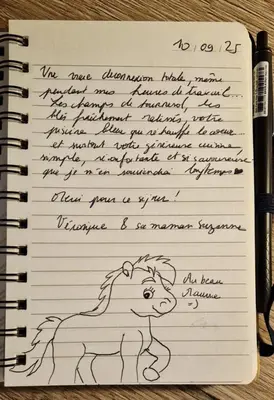 10/09/25
Une vraie déconnexion totale, même
pendant mes heures de travail...
Les champs de tournesol, les
blés fraîchement ratissés, votre
piscine bleue qui réchauffe le coeur...
et surtout votre généreuse cuisine,
simple, réconfortante et si savoureuse
que je m'en souviendrai longtemps
Merci pour ce séjour !
Véronique & sa maman Suzanne
Au beau
Maurice
=)